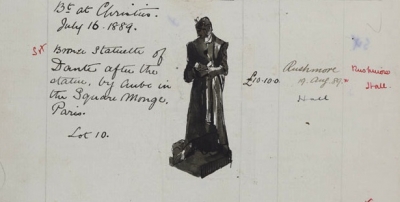 Bt. at Christies.
July 16. 1889.
Bronze Statuette of
Dante after the
statue, by Aubé in
the Square Monge,
Paris.
Lot 10.
£10.10.0
Rushmore
Aug. 89.
Hall
Rushmore
Hall.